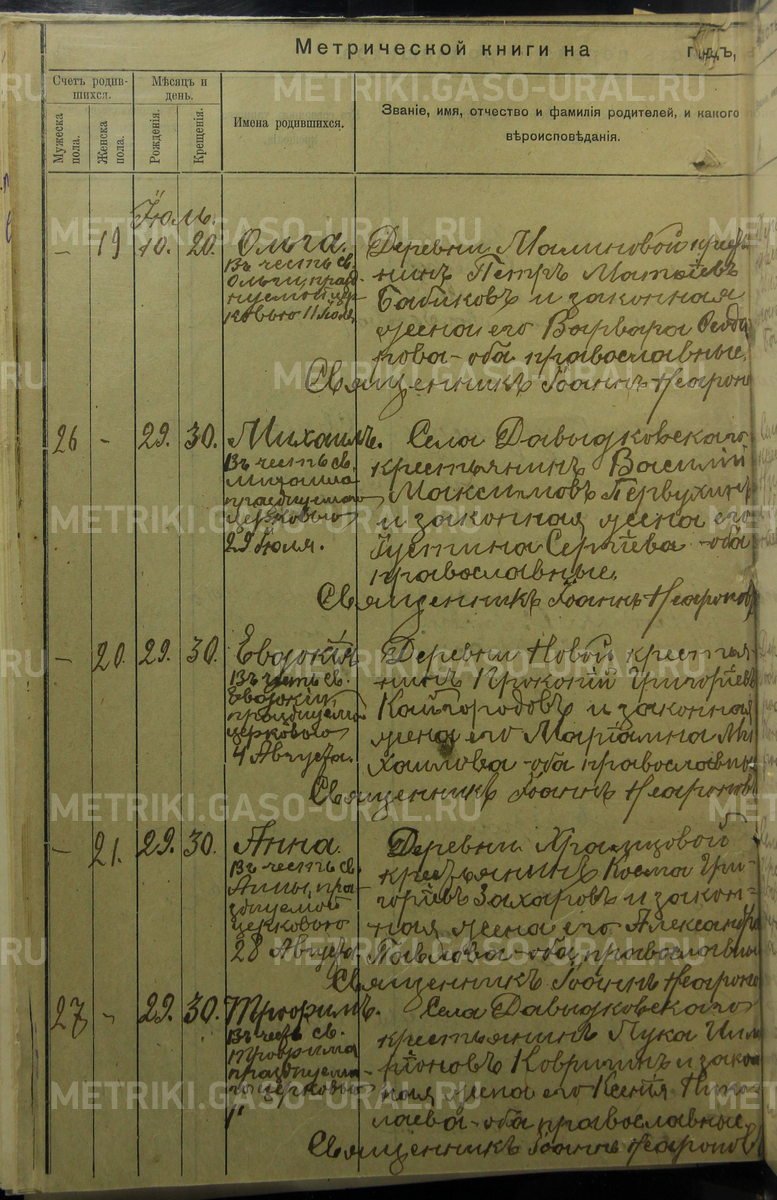 Метрической книги на годъ,
Счетъ родив-
шихся.
Мѣсяцъ и
день.
Мужеска
пола.
Женска
пола.
Рожденія.
Крещенія.
Имена родившихся.
Званіе, имя, отчество и фамилія родителей, и какого
вѣроисповѣданія.
Іюль.
– 19 10. 20. Ольга.
Въ честь св.
Ольги, празд-
нуемой цер-
ковью 11 Іюля
Деревни Малиновой крестья-
нинъ Петръ Матѳіевъ
Бабиковъ и законная
жена его Варвара Ѳеодо
рова – оба православные.
Священникъ Іоаннъ
26 – 29. 30. Михаилъ.
Въ честь св.
Михаила
празднуемаго
церковью
29 Іюля.
Села Давыдковскаго
крестьянинъ Василій
Максимовъ Первухинъ
и законная жена его
Іустина Сергіева – оба
православные.
Священникъ Іоаннъ
– 20. 29. 30. Евдокія
Въ честь св.
Евдокіи,
празднуемой
церковью
4 Августа.
Деревни Новой крестья-
нинъ Прокопій Григоріевъ
Кайгородовъ и законная
жена его Маріамна Ми
хаилова – оба православные
Священникъ Іоаннъ
– 21. 29. 30. Анна.
Въ честь св.
Анны, пра-
зднуемой
церковью
28 Августа.
Деревни
крестьянинъ Косма Гри-
горіевъ Захаровъ и закон-
ная жена его Александра
Павлова – оба православные
Священникъ Іоаннъ
27 – 29. 30. Трофимъ.
Въ честь св.
Трофима
празднуема-
го церковью
Села Давыдковскаго
крестьянинъ Лука Ила
ріоновъ Ковригинъ и закон
ная жена его Ксенія Нико
лаева – оба православные.
Священникъ Іоаннъ
METRIKI.GASO-URAL.RU